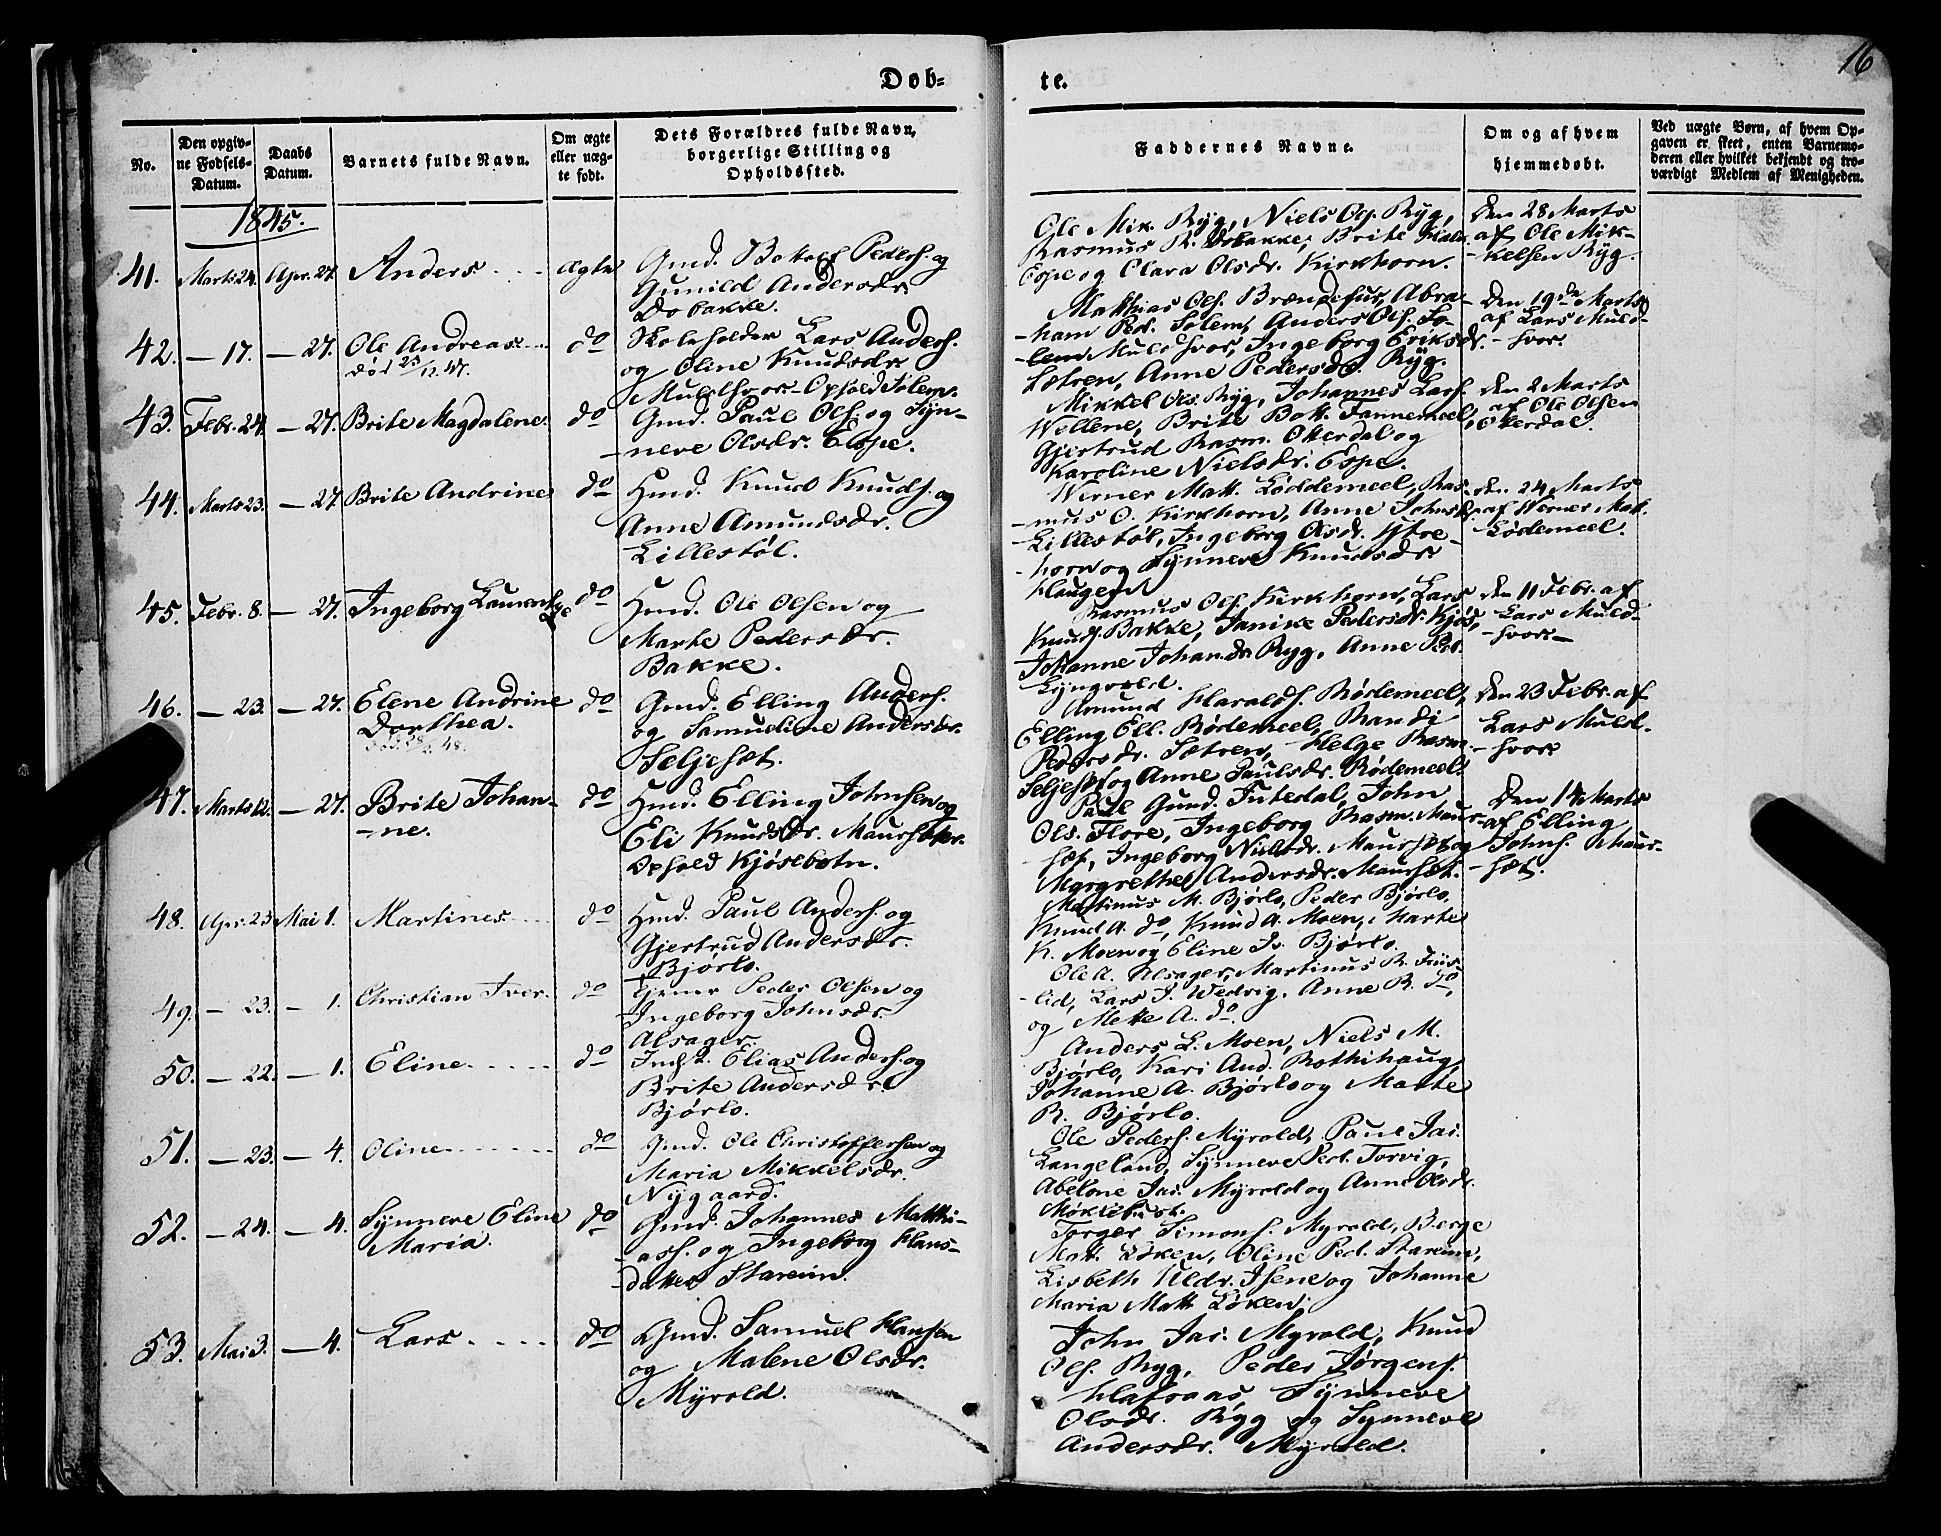 16
Døb-
te.
No.
Den opgiv-
ne Fødsels-
Datum.
Daabs
Datum.
Barnets fulde Navn.
Om ægte
eller uæg-
te født.
Dets Forældres fulde Navn,
borgerlige Stilling og
Opholdssted.
Faddernes Navne.
Om og af hvem
hjemmedøbt.
Ved uægte Børn, af hvem Op-
gaven er skeet, enten Barnemo-
deren eller hvilket bekjendt og tro-
værdigt Medlem af Menigheden.
1845.
41. Marts 24. Apr. 27. Anders ægte
Gmd. Peders. og
Gunild Andersdr.
Dobakke.
Ole Mik. Ryg, Niels Ols. Ryg,
Rasmus R. Dobakke, Brite
Espe og Clara Olsdr. Kirkhorn.
Den 28 Marts
af Ole Mik-
kelsen Ryg.
42. — 17. — 27. Ole Andreas do
død 25/12 47.
Skoleholder Lars Anders.
og Oline Knudsdr.
Muldsvor - Ophold Solem.
Matthias Ols. Brændefur, Abra-
ham Ped. Solem, Anders Ols. So-
lem Muldsvor, Ingeborg Eriksdr.
Sætren, Anne Pedersdr. Ryg.
Den 19de Marts
af Lars Muld-
svor.
43. Febr. 24. — 27. Brite Magdalene. do
Gmd. Paul Ols. og Syn-
neve Olsdr. Espe.
Mikkel Ols. Ryg, Johannes Lars.
Wellene, Brite Bott. Tannemeel,
Gjertrud Rasm. Otterdal og
Karoline Nielsdr. Espe.
Den 2 Marts
af Ole Olsen
Otterdal.
44. Marts 23. — 27. Brite Andrine do
Hmd. Knud Knuds. og
Anne Amundsdr.
Lillestøl.
Werner Matt. Løddemeel, Ras-
mus O. Kirkhorn, Anne Johnsdr.
Lillestøl, Ingeborg Olsdr. Ytre-
horn og Synneve Knudsdr.
Haugen
Den 24 Marts
af Werner Matt.
Lødemeel.
45. Febr. 8. — 27. Ingeborg do
Hmd. Ole Olsen og
Marte Pedersdr.
Bakke.
Rasmus Ols. Kirkhorn, Lars
Knuds. Bakke, Janike Pedersdr. Kjøs,
Johanne Johan.dr. Ryg, Anne Ped.
Lyngvold.
Den 11 Febr. af
Lars Muld-
svor.
46. — 23. — 27. Elene Andrine do
Dorthea.
Gmd. Elling Anders.
og Samueline Andersdr.
Seljeset.
Amund Haralds. Rødemeel,
Elling Ell. Rødemeel, Randi
Pedersdr. Sætren, Helge Rasm.
Seljeset og Anne Paulsdr. Rødemeel.
Den 23 Febr. af
Lars Muld-
svor
47. Marts 12. — 27. Brite Johan- do
ne.
Hmd. Elling Johnsen og
Eli Knudsdr. Maurset.
Ophold Kjøsebotn.
Paul Gund. Futedal, John
Ols. Flore, Ingeborg Rasm. Maur-
set, Ingeborg Nielsdr. Maurset og
Margrethe Andersdr. Maurset.
Den 14 Marts
af Elling
Johns. Maur-
set.
48. Apr. 23 Mai 1. Martines do
Hmd. Paul Anders. og
Gjertrud Andersdr.
Bjørlo.
Martinus M. Bjørlo, Peder Bjørlo,
Knud A. do, Knud A. Moen, Marte
K. Moen og Eline Is. Bjørlo.
49. — 23. — 1. Christian Iver. do
Tjener Peder Olsen og
Ingeborg Johnsdr.
Alsager
Ole A. Alsager, Martinus R. Friis-
lid, Lars J. Wedvig, Anne R. do,
og Mette A. do.
50. — 22. — 1. Eline do
Indst. Elias Anders. og
Brite Andersdr.
Bjørlo.
Anders L. Moen, Niels M.
Bjørlo, Kari And. Rothihaug,
Johanne A. Bjørlo og Marte
R. Bjørlo.
51. — 23. — 4. Oline do
Gmd. Ole Christoffersen og
Maria Mikkelsdr.
Nygaard.
Ole Peders. Myrold, Paul Jac.
Langeland, Synneve Ped. Torvig,
Abelone Jac. Myrold og Anne Olsdr.
Møkkebust.
52. — 24. — 4. Synneve Eline do
Maria.
Gmd. Johannes Matthi-
ass. og Ingeborg Hans-
datter Stareim.
Torger Simons. Myrold, Berge
Matt. Løken, Oline Ped. Stareim,
Lisbeth Isene og Johanne
Maria Matt. Løken.
53. Mai 3. — 4. Lars do
Gmd. Samuel Hansen
og Malene Olsdr.
Myrold.
John Jac. Myrold, Knud
Ols. Ryg, Peder Jørgens.
Hafsaas, Synneve
Olsdr. Ryg og Synneve
Andersdr. Myrold.